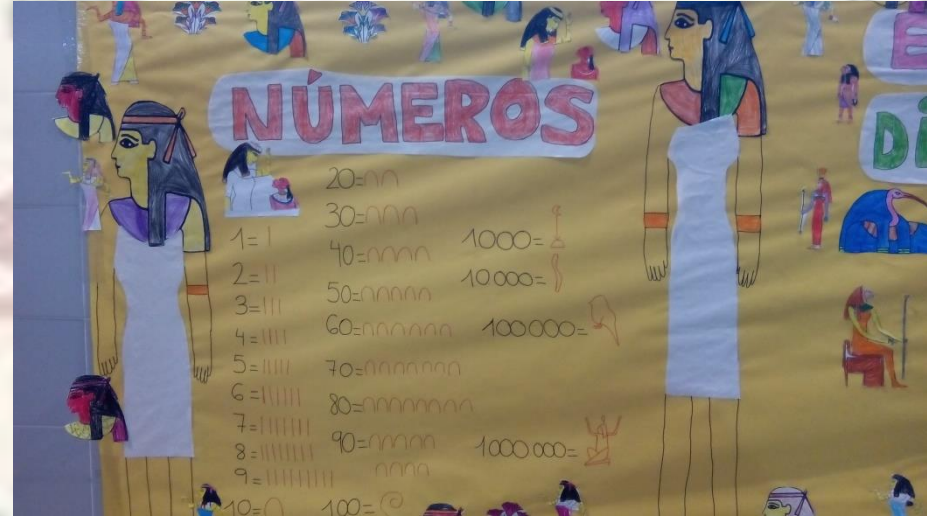 NÚMEROS
E
DÍ
1=|
2=||
3=|||
4=||||
5=|||||
6=||||||
7=|||||||
8=||||||||
9=|||||||||
10=∩
20=∩∩
30=∩∩∩
40=∩∩∩∩
50=∩∩∩∩∩
60=∩∩∩∩∩∩
70=∩∩∩∩∩∩∩
80=∩∩∩∩∩∩∩∩
90=∩∩∩∩∩
∩∩∩∩
100=
1000=
10000=
100000=
1000000=